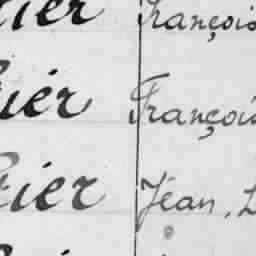 tier François
tier François
tier Jean, L